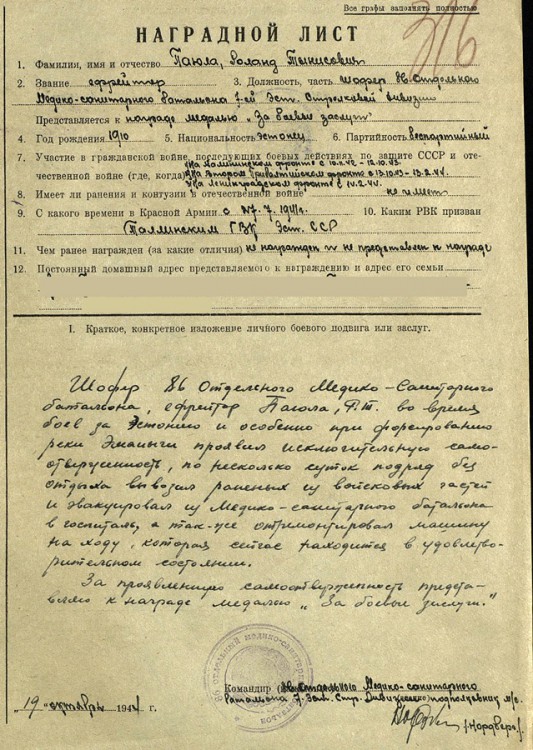 Все графы заполнять полностью
316
НАГРАДНОЙ ЛИСТ
1. Фамилия, имя и отчество Паюла, Роланд Тынисович
2. Звание ефрейтор 3. Должность, часть шофер 86 Отдельного
Медико-санитарного батальона 7-ой Эст. Стрелковой дивизии
Представляется к награде медалью "За боевые заслуги"
4. Год рождения 1910 5. Национальность эстонец 6. Партийность беспартийный
7. Участие в гражданской войне, последующих боевых действиях по защите СССР и оте-
На Калининском фронте с
чественной войне (где, когда) На Втором Прибалтийском фронте с
На Ленинградском фронте с
8. Имеет ли ранения и контузии в отечественной войне не имеет
9. С какого времени в Красной Армии с 7.1941г. 10. Каким РВК призван
Таллинским ГВК Эст. ССР
11. Чем ранее награжден (за какие отличия) не награжден и не представлен к награде
12. Постоянный домашный адрес представляемого к награждению и адрес его семьи
I. Краткое, конкретное изложение личного боевого подвига или заслуг.
Шофер 86 Отдельного Медико-Санитарного
батальона, ефрейтор Паюла, Р.Т. во время
боев за Эстонию и особенно при форсировании
реки Эмайыги проявил исключительную само-
отверженность, по несколько суток подряд без
отдыха вывозил раненых из войсковых частей
и эвакуировал из Медико-санитарного батальона
в госпиталь, а так-же отремонтировал машину
на ходу, которая сейчас находится в удовлетво-
рительном состоянии.
За проявленную самоотверженность предста-
вляю к награде медалью "За боевые заслуги."
86 отдельный медико-санитарный батальон
Командир 86 Отдельного Медико-санитарного
батальона 7. Эст. Стр. Дивизии подполковник м/с.
"19" октября 1944 г.